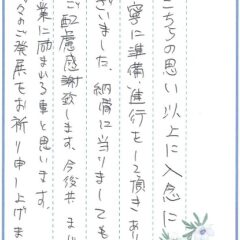 こちらの思い以上に入念に
寧に準備・進行をして頂きあり
ざいました。納骨に当りましても
ご配慮感謝致します。今後共
業に励まれる事と思います。
々のご発展をお祈り申し上げま